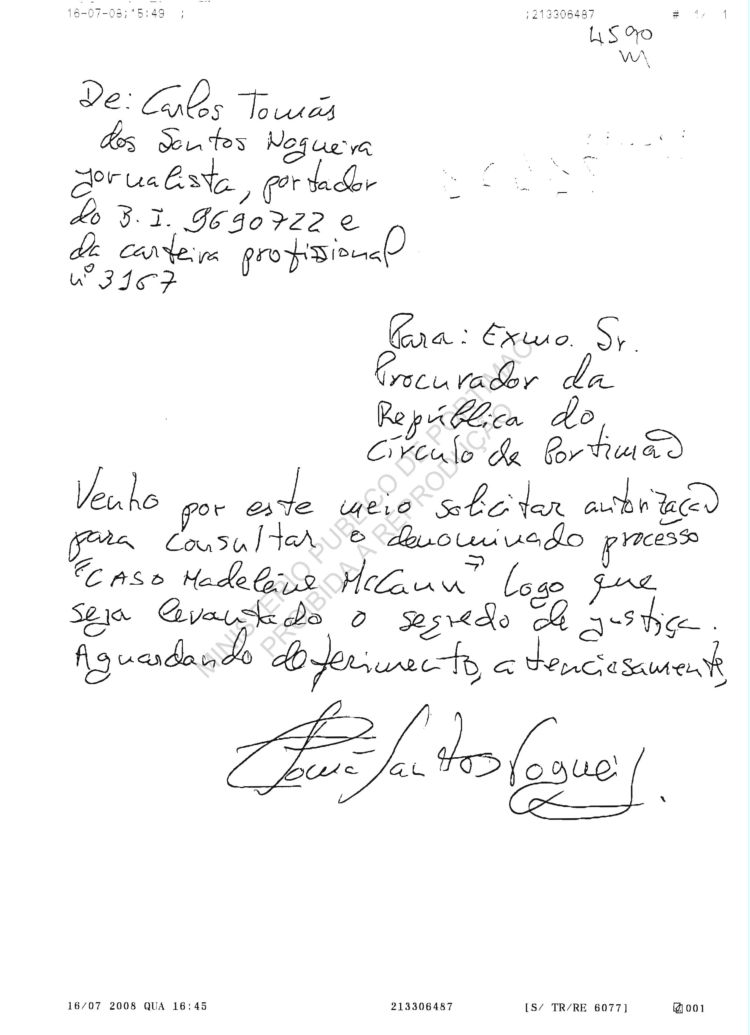 16-07-08;15:49 ; ;213306487 # 1/ 1
4590
De: Carlos Tomás
dos Santos Nogueira
jornalista, portador
do B. I. 9690722 e
da carteira profissional
nº 3167
Para: Exmo. Sr.
Procurador da
República do
Círculo de Portimão
Venho por este meio solicitar autorização
para consultar o denominado processo
"CASO Madeleine McCann" logo que
seja levantado o segredo de justiça.
Aguardando deferimento, atenciosamente,
MINISTÉRIO PUBLICO DE PORTIMÃO
PROIBIDA A REPRODUÇÃO
Tomás Santos Nogueira
16/07 2008 QUA 16:45 213306487 [S/ TR/RE 6077] 001